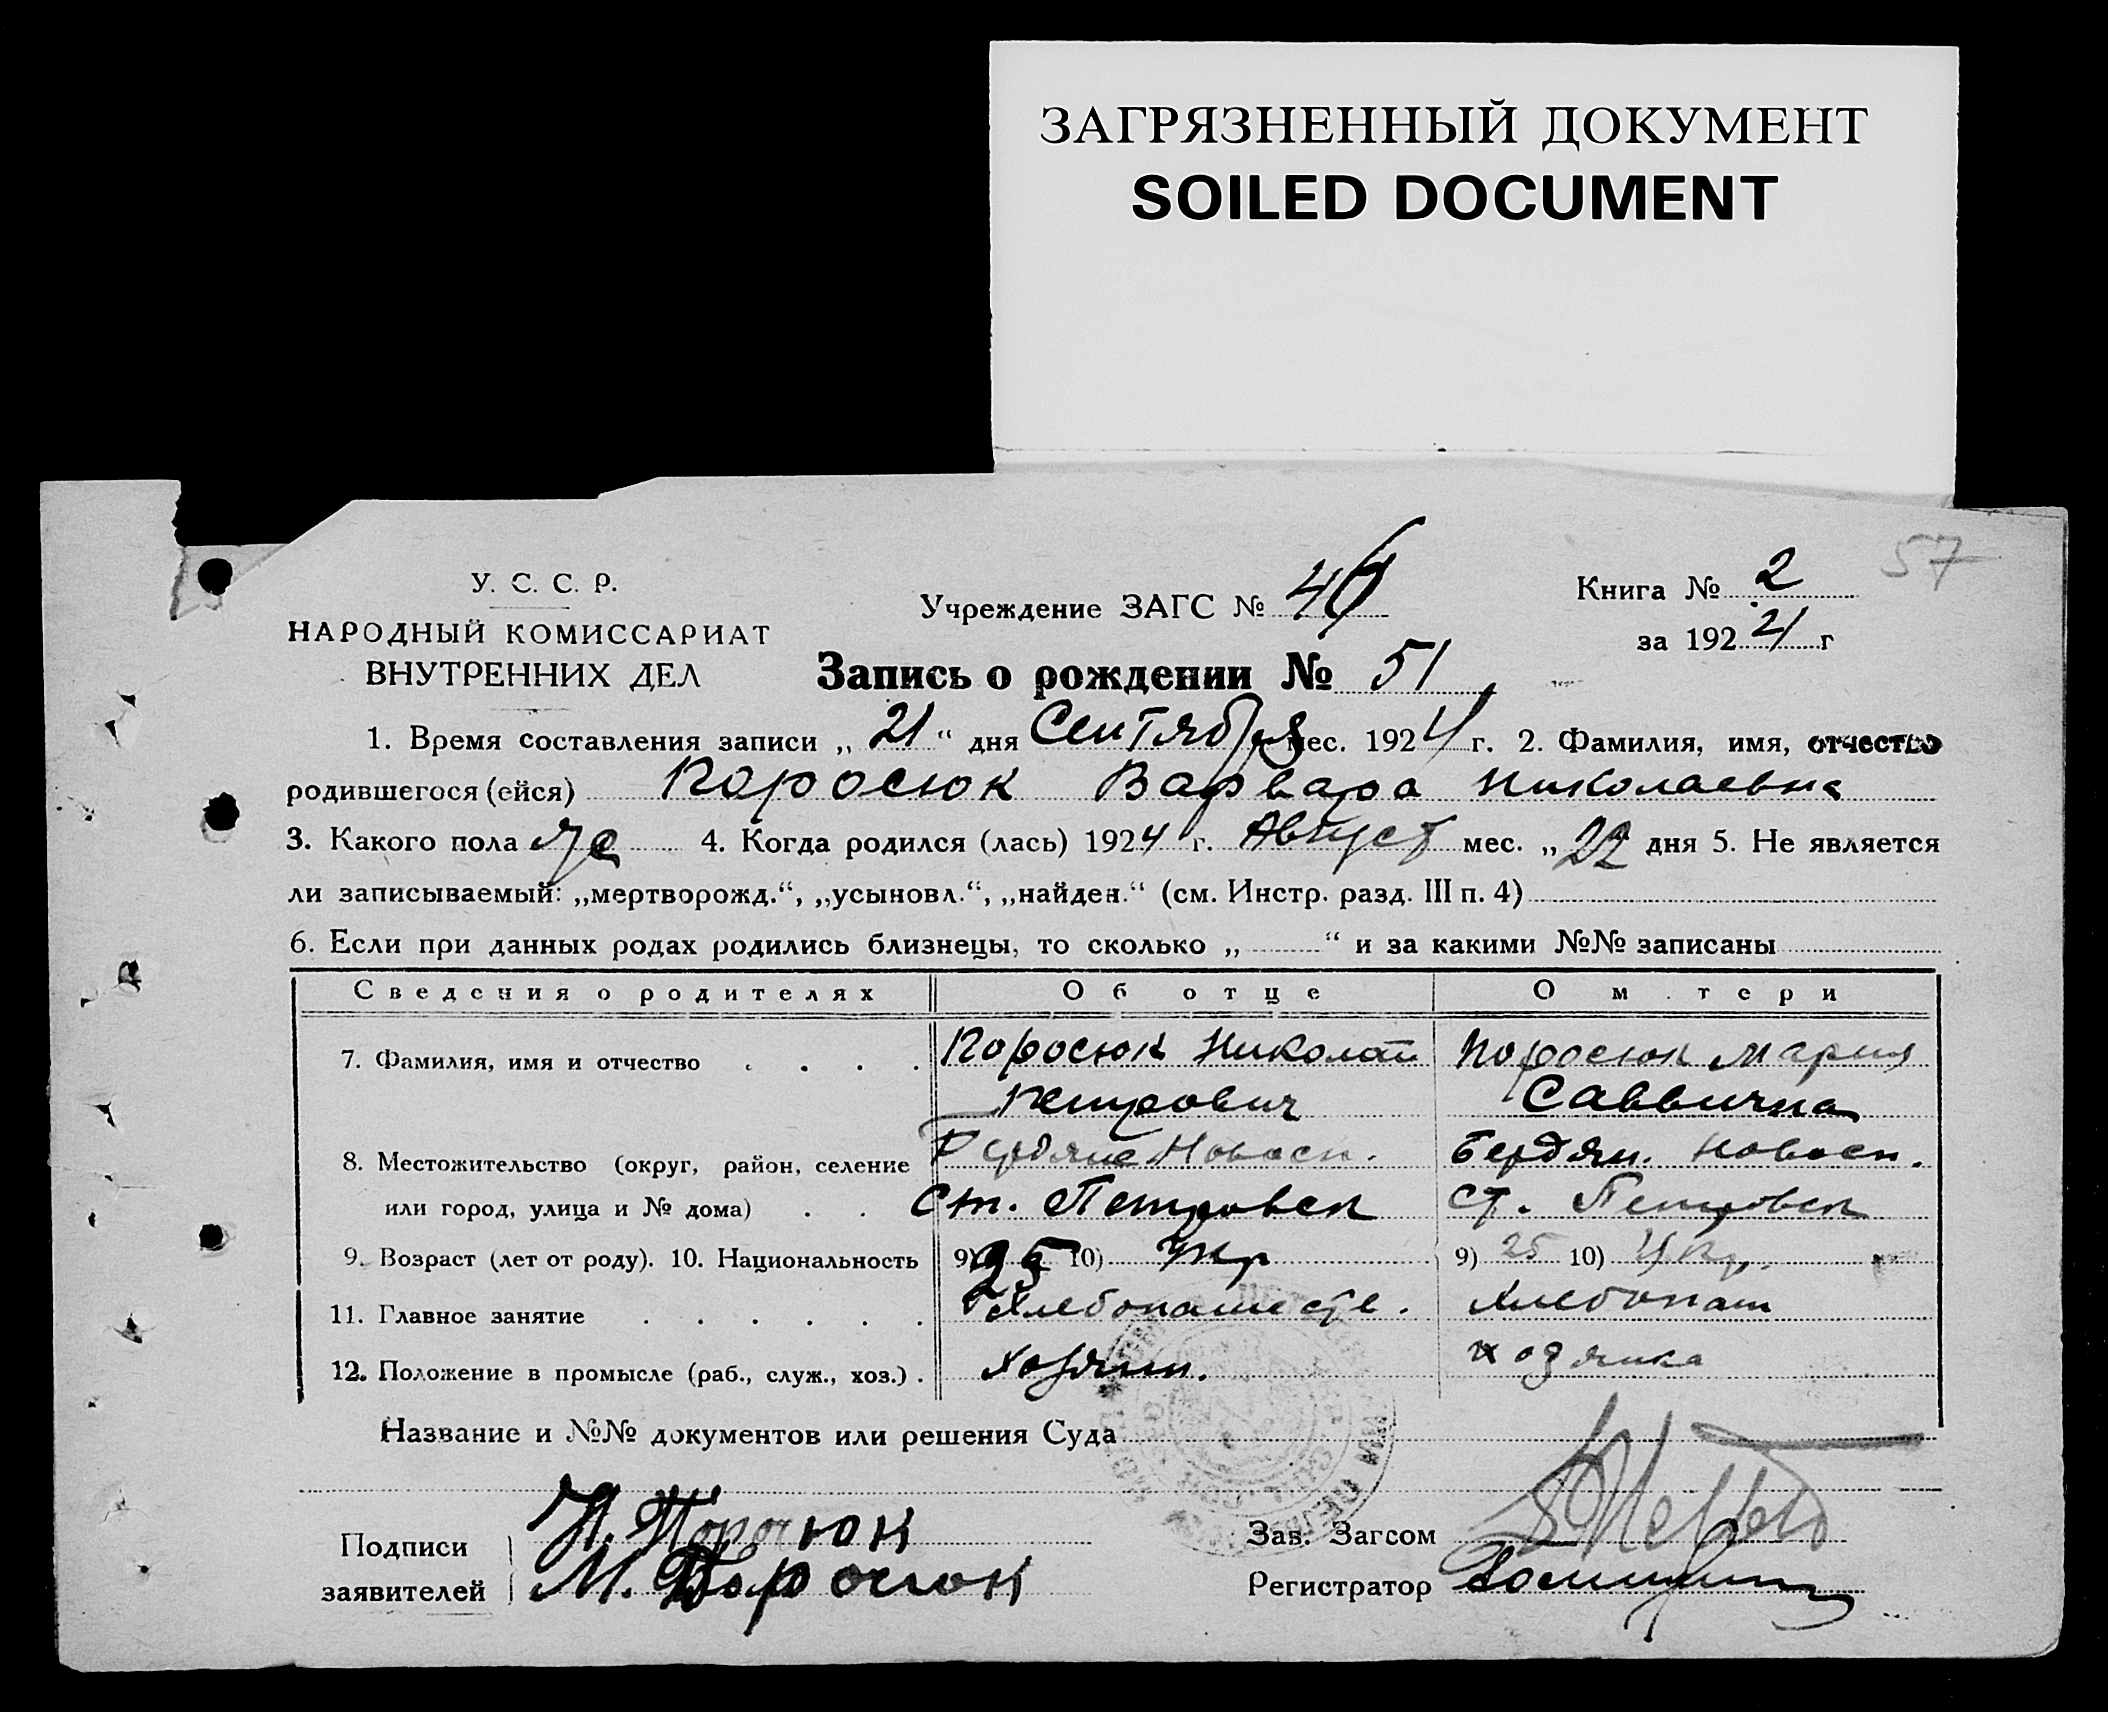 ЗАГРЯЗНЕННЫЙ ДОКУМЕНТ
SOILED DOCUMENT
57
У. С. С. Р.
НАРОДНЫЙ КОМИССАРИАТ
ВНУТРЕННИХ ДЕЛ
Учреждение ЗАГС №
Книга № 2
за 1924 г
Запись о рождении № 51
1. Время составления записи „ 21 “ дня Сентября мес. 1924 г. 2. Фамилия, имя, отчество
родившегося (ейся) Поросюк Варвара Николаевна
3. Какого пола 4. Когда родился (лась) 1924 г. Август мес. „ 22 дня 5. Не является
ли записываемый: „мертворожд.“, „усыновл.“, „найден.“ (см. Инстр. разд. III п. 4)
6. Если при данных родах родились близнецы, то сколько „ “ и за какими №№ записаны
Сведения о родителях Об отце О м тери
7. Фамилия, имя и отчество . . . . Поросюк Николай Поросюк Мария
Петрович Саввична
8. Местожительство (округ, район, селение Бердянс Новосп. Бердян. Новосп.
или город, улица и № дома) . . Ст. Петровск ст. Петровск
9. Возраст (лет от роду). 10. Национальность 9) 25 10) Укр 9) 25 10) Укр.
11. Главное занятие . . . . . . Хлебопашеств. Хлебопаш
12. Положение в промысле (раб., служ., хоз.) . Хозяин. хозяйка
Название и №№ документов или решения Суда
Подписи Н. Поросюк
заявителей М. Поросюк
Зав. Загсом
Регистратор